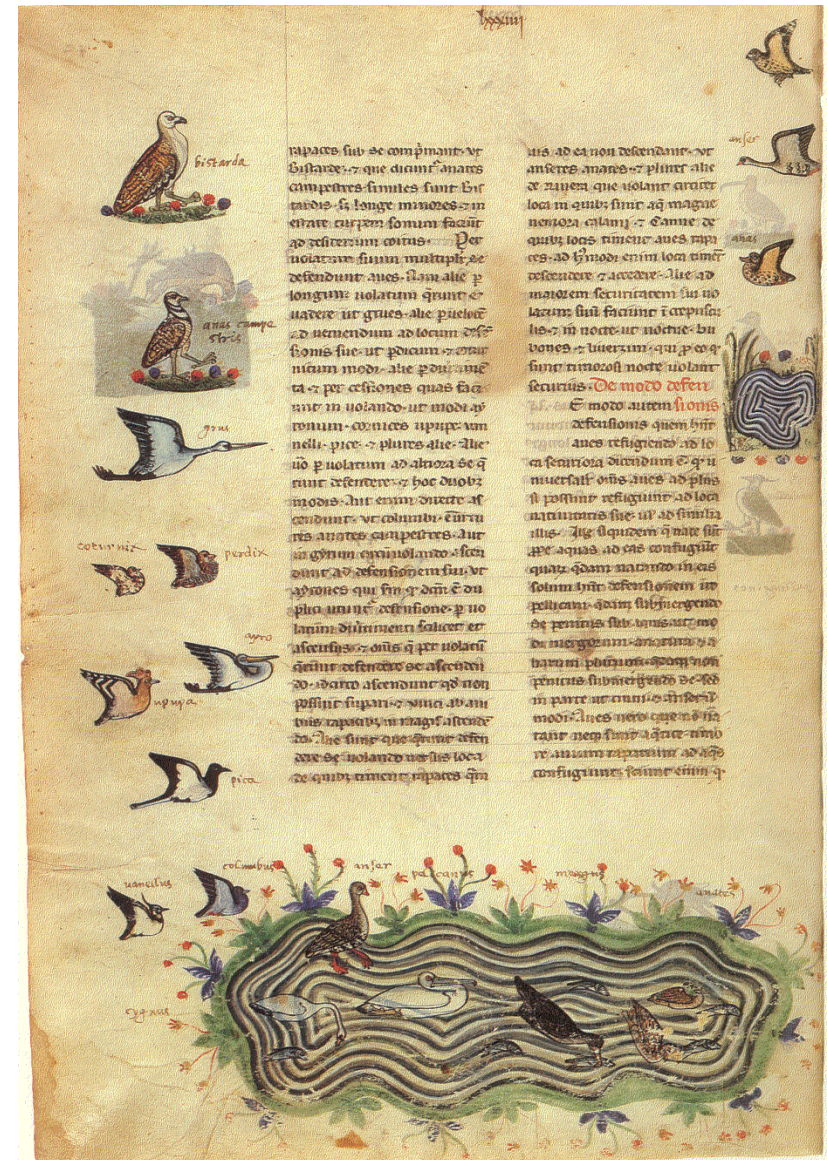 lxxxiiii
rapaces sub se comprimant. ut
bistarde. et que dicuntur anates
campestres similes sunt bis
tardis. sed longe minores. et in
estate turpem sonum faciunt
ad desiderium coitus. Per
volatum suum multipliciter se
defendunt aves. Nam alie per
longum volatum querunt e
vadere ut grues. alie per
ad veniendum ad locum
sionis sue. ut perdicum. et cotur
nicum modi. alie per
ta. et per
unt in volando. ut modi ay
ronum. cornices upupe. van
nelli. pice. et plures alie. Alie
vero per volatum ad altiora se que
runt defendere. et hoc duobus
modis. Aut enim directe as
cendunt. ut columbi
res anates campestres. Aut
in gyrum circumvolando ascen
dunt ad defensionem sui. ut
ayrones qui
plici utuntur defensione. per vo
latum scilicet et
ascensus. et omnes que per volatum
querunt defendere se ascenden
do. idcirco ascendunt quod non
possint supari. et vinci ab avi
bus rapacibus in magis ascenden
do. Alie sunt que querunt defen
dere se volando versus loca
de quibus timent rapaces
ad ea non descendant. ut
anseres anates. et plures alie
de rivera que volant circiter
loca in quibus sunt aque magne
nemora calami. et Canne de
quibus locis timent aves rapa
ces. ad enim loca timent
descendere. et accedere. Alie ad
maiorem securitatem sui vo
latum suum faciunt in crepuscu
lis. et in nocte. ut noctue. bu
bones. et qui
sunt timorosi nocte volant
securius. De modo defen
E modo autem sionis
defensionis quem habent
aves refugiendo ad lo
ca securiora dicendum est. quod u
niversaliter omnes aves ad plus
si possint refugiunt ad loca
nativitatis sue. vel ad similia
illis. siquidem que nate sunt
prope aquas ad eas confugiunt
quarum quedam natando in eis
solum habent defensionem ut
pellicani. quedam submergendo
se penitus sub aquis ut mo
di mergorum. anatum. et a
liarum plurium. quedam non
penitus submergendo se. sed
in parte ut cigni. et anserum
modi. Aves vero que non na
tant neque sunt aquatice timo
re avium rapacium ad aquas
confugiunt. sciunt enim quod
bistarda
anas campe
stris
grus
coturnix
perdix
ayro
upupa
pica
vanellus
columbus
anser
pelicanus
mergus
anates
cygnus
anser
anas